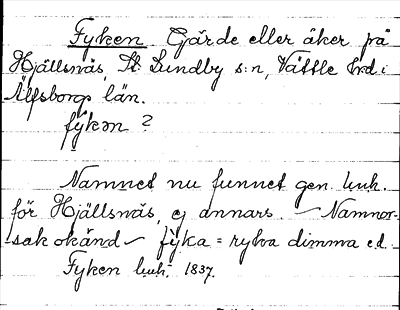 Fyken Gärde eller åker på
Hjällsnäs, St. Lundby s:n, Vättle hrd i
Älfsborgs län.
fy̨kən ?
Namnet nu funnet gen. huk.
för Hjällsnäs, ej annars. — Namnor-
sak okänd — fyka = ryka dimma e.d.
Fyken huk. 1837.